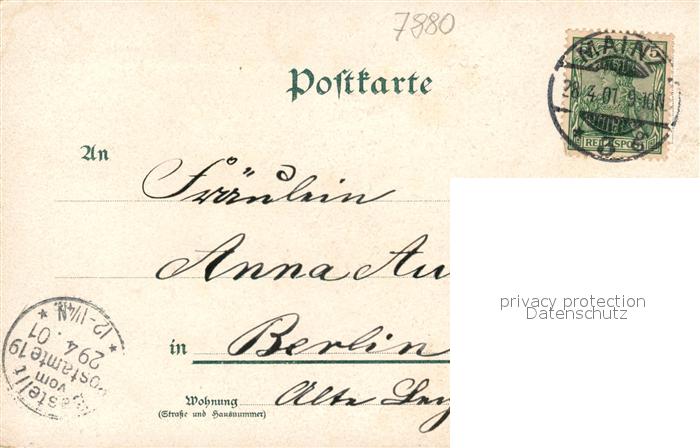 7880
Postkarte
MAINZ
28.4.01.9-10N
* 6 *
5
REICHSPOST
An
Fräulein
Anna Au
privacy protection
Datenschutz
in Berlin
Wohnung Alte
(Straße und Hausnummer)
Bestellt
vom
Postamte 19
29 4. 01
* 12-1¼N. *